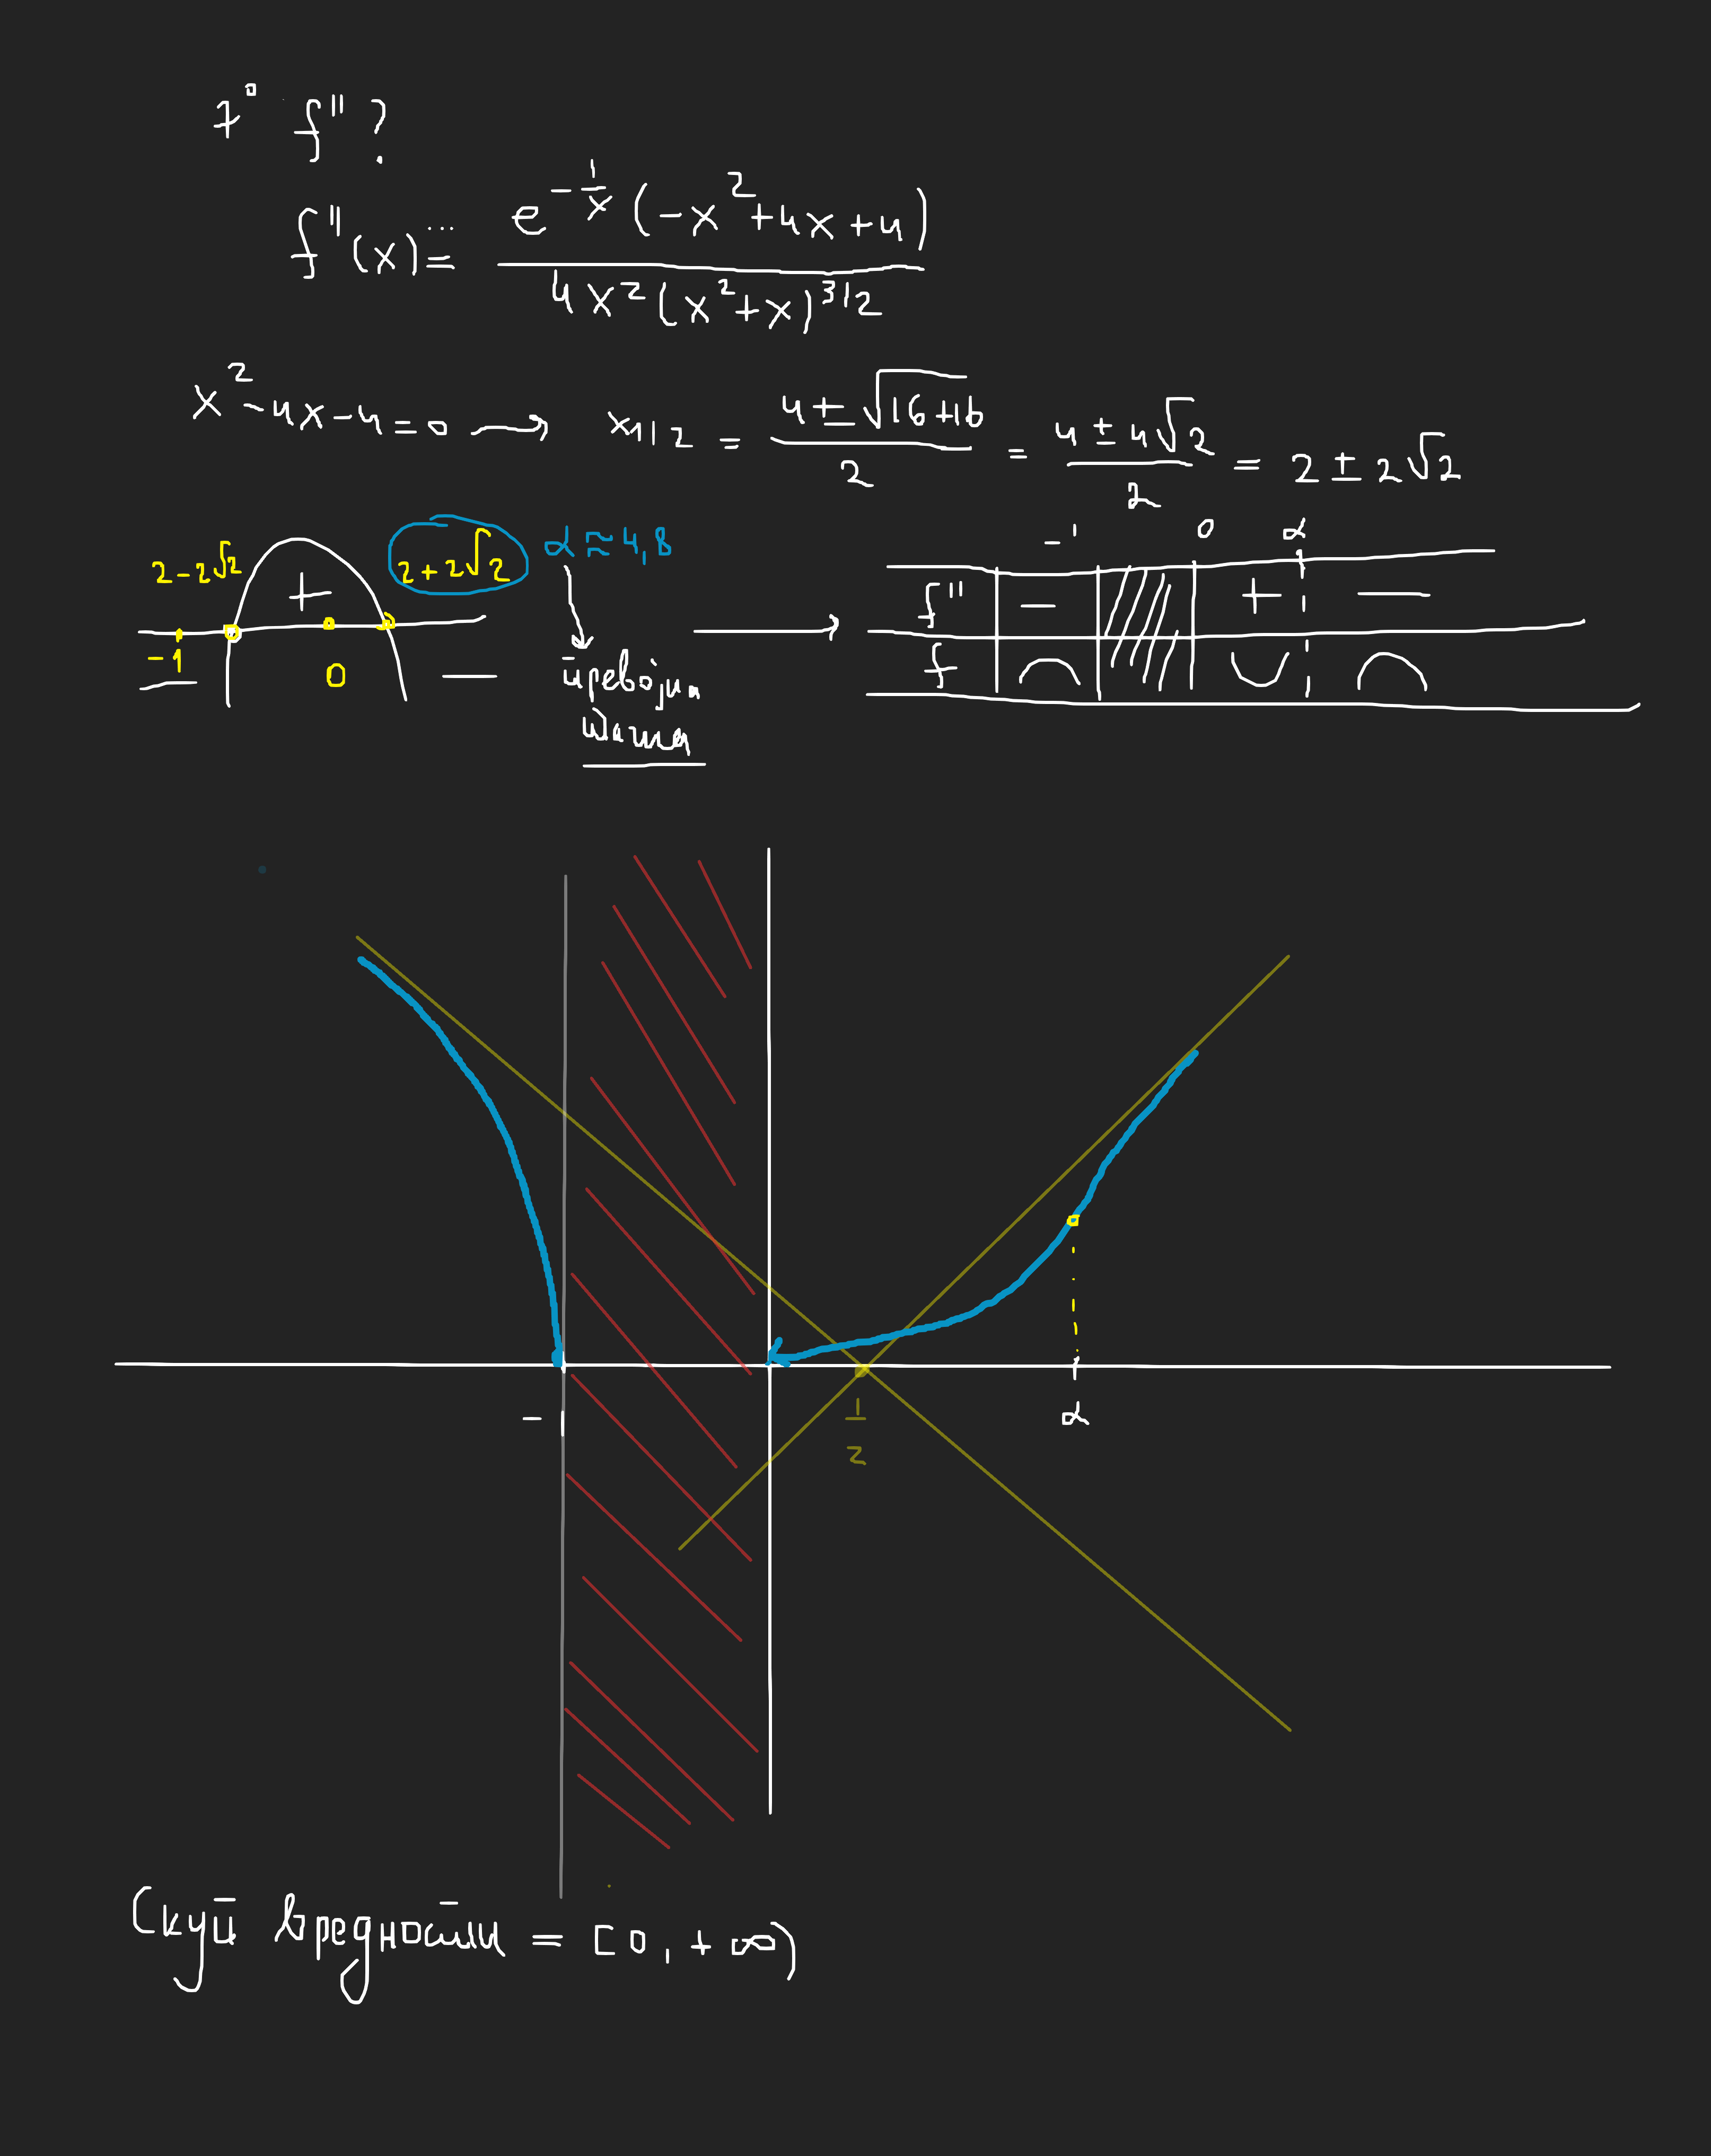 7° f'' ?
f''(x) = ... = e^{-1/x} (-x² + 4x + 4) / 4x² (x² + x)^{3/2}
x² - 4x - 4 = 0 → x₁,₂ = (4 ± √(16+16)) / 2 = (4 ± 4√2) / 2 = 2 ± 2√2
2 - 2√2 + 2 + 2√2 α ≈ 4,8
-1 0
- -
превојна
тачка
-1 0 α
f'' - + -
f ∩ ∪ ∩
-1 1/2 α
Скуп вредности = [0, +∞)